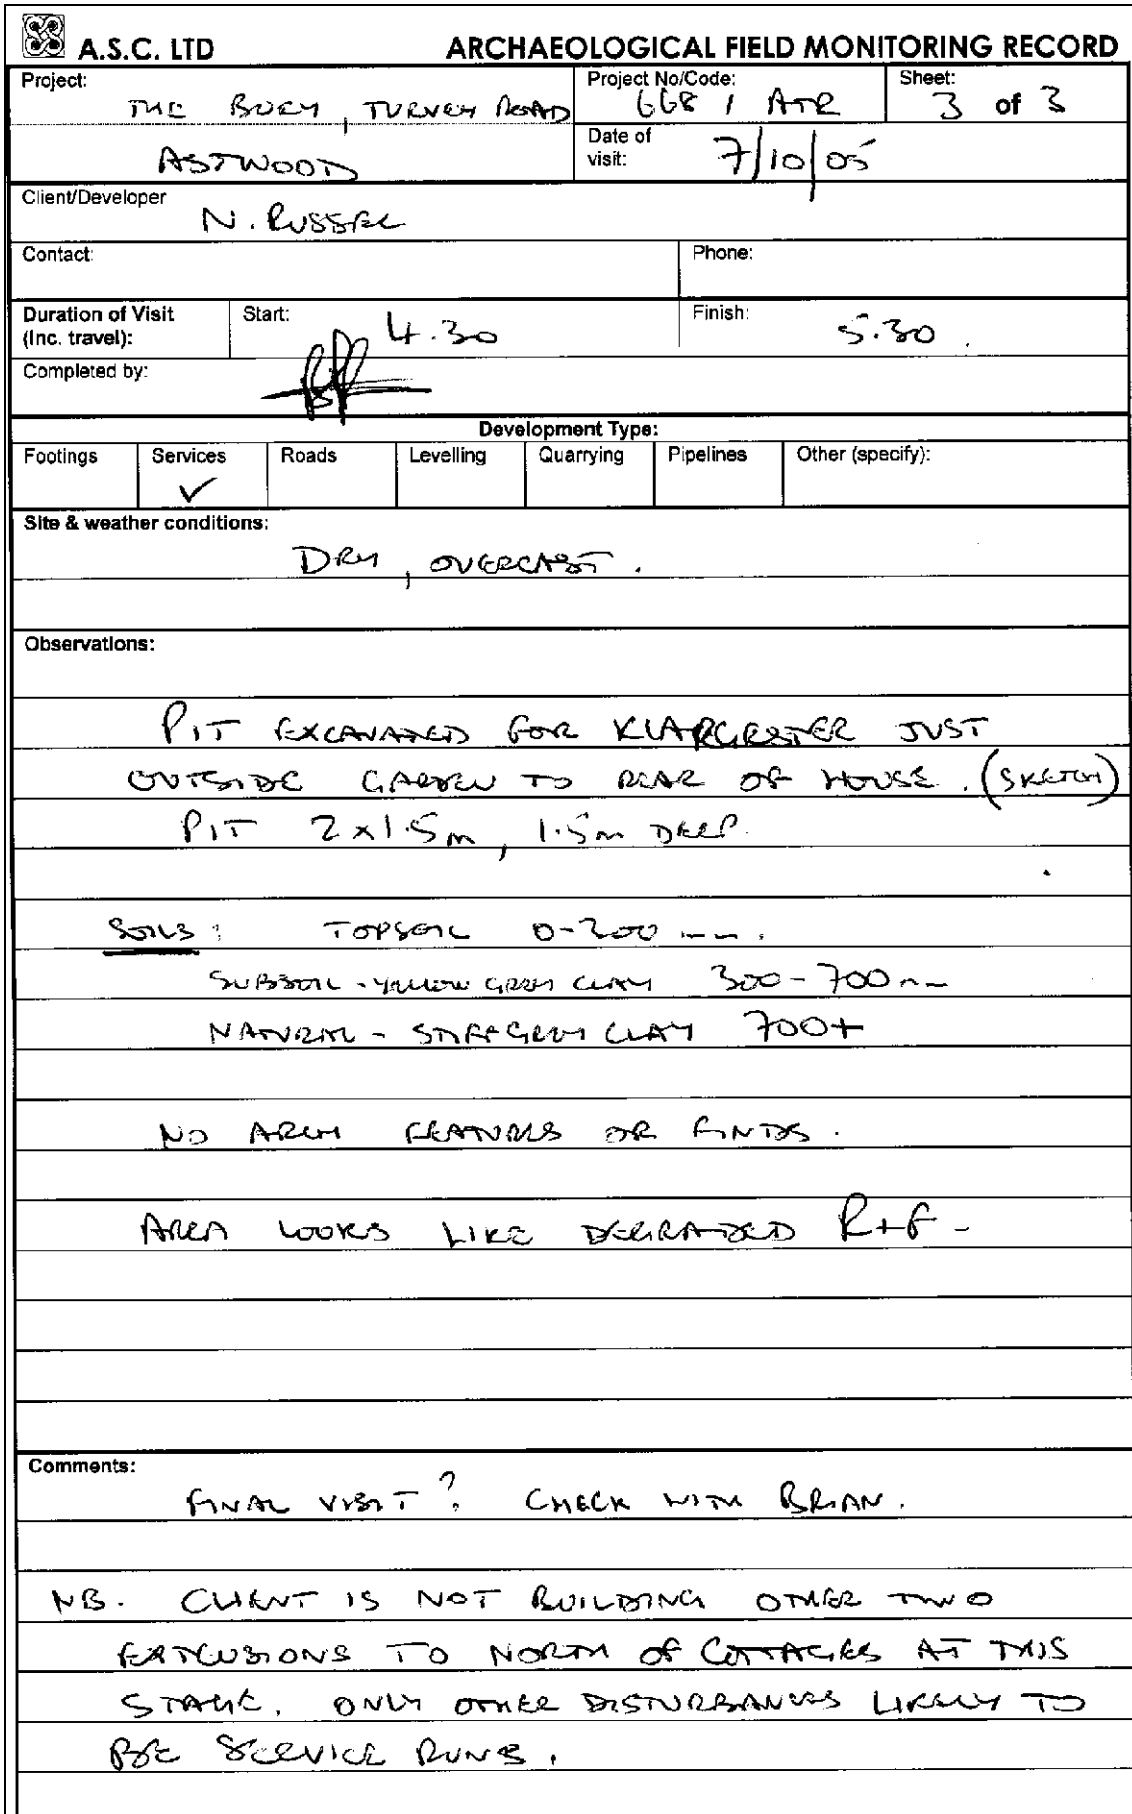 A.S.C. LTD ARCHAEOLOGICAL FIELD MONITORING RECORD
Project: Project No/Code: Sheet:
THE BURY, TURVEY ROAD 668 / ATR 3 of 3
ASTWOOD
Date of visit: 7/10/05
Client/Developer
N. RUSSEL
Contact: Phone:
Duration of Visit (Inc. travel): Start: 4.30 Finish: 5.30.
Completed by:
Development Type:
Footings Services Roads Levelling Quarrying Pipelines Other (specify):
✓
Site & weather conditions:
DRY, OVERCAST.
Observations:
PIT EXCAVATED FOR KLARGESTER JUST
OUTSIDE GARDEN TO REAR OF HOUSE. (SKETCH)
PIT 2x1.5m, 1.5m DEEP.
SOILS: TOPSOIL 0-300 mm.
SUBSOIL - YELLOW GREY CLAY 300-700mm
NATURAL - STIFF GREY CLAY 700+
NO ARCH FEATURES OR FINDS.
AREA LOOKS LIKE DEGRADED R+F -
Comments:
FINAL VISIT? CHECK WITH BRIAN.
NB. CLIENT IS NOT BUILDING OTHER TWO
EXTENSIONS TO NORTH OF COTTAGES AT THIS
STAGE. ONLY OTHER DISTURBANCES LIKELY TO
BE SERVICE RUNS.